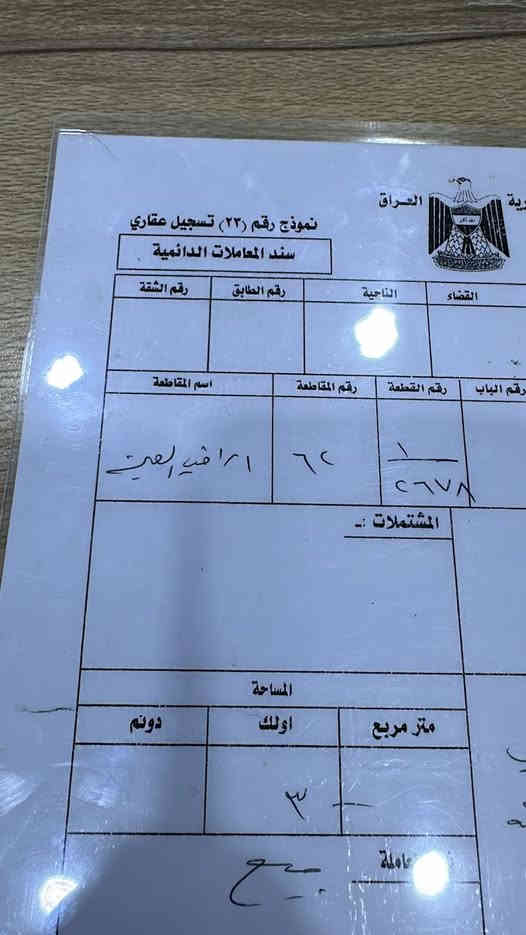 العراق
نموذج رقم (٢٣) تسجيل عقاري
سند المعاملات الدائمية
القضاء الناحية رقم الطابق رقم الشقة
رقم الباب رقم القطعة رقم المقاطعة اسم المقاطعة
١
٢٦٧٨
٦٢
اراضي العين
المشتملات :ـ
المساحة
متر مربع اولك دونم
— ٣
بيع